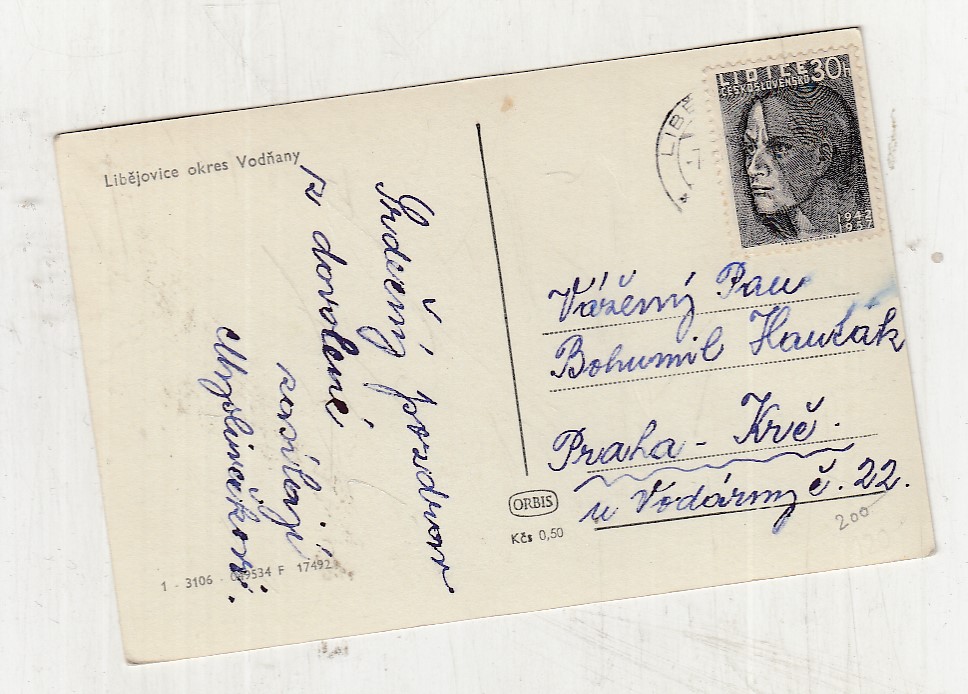 Libějovice okres Vodňany
Srdečný pozdrav
z dovolené
zasílají
LIBĚ
LIDICE 30H
ČESKOSLOVENSKO
1942
1957
Vážený Pan
Bohumil Hauták
Praha - Krč.
u Vodárny č. 22.
200
ORBIS
Kčs 0,50
1 - 3106 - 049534 F 17492